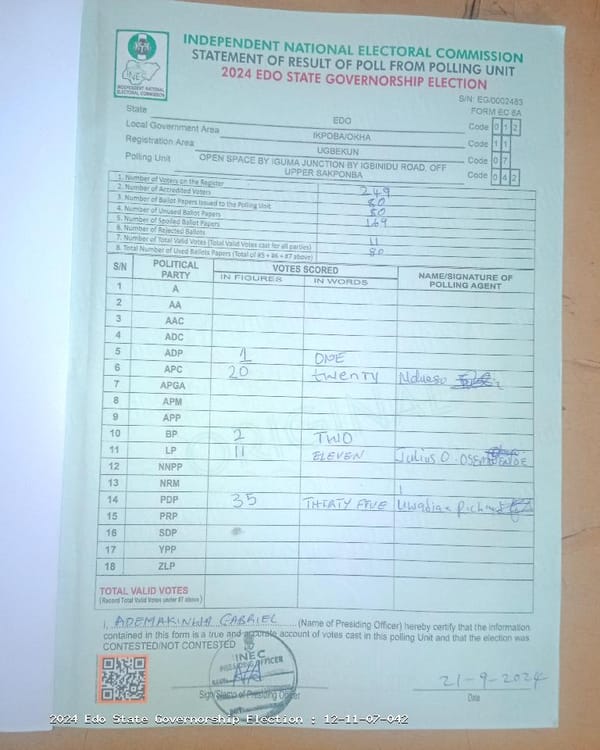 INDEPENDENT NATIONAL ELECTORAL COMMISSION
STATEMENT OF RESULT OF POLL FROM POLLING UNIT
2024 EDO STATE GOVERNORSHIP ELECTION
INEC
INDEPENDENT NATIONAL ELECTORAL COMMISSION
S/N: EG/0002483
FORM EC 8A
State EDO Code 0 1 2
Local Government Area IKPOBA/OKHA Code 1 1
Registration Area UGBEKUN Code 0 7
Polling Unit OPEN SPACE BY IGUMA JUNCTION BY IGBINIDU ROAD, OFF UPPER SAKPONBA Code 0 4 2
1. Number of Voters on the Register 249
2. Number of Accredited Voters 80
3. Number of Ballot Papers Issued to the Polling Unit 80
4. Number of Unused Ballot Papers 169
5. Number of Spoiled Ballot Papers
6. Number of Rejected Ballots 11
7. Number of Total Valid Votes (Total Valid Votes cast for all parties)
8. Total Number of Used Ballots Papers (Total of #5 + #6 + #7 above) 80
S/N POLITICAL PARTY VOTES SCORED NAME/SIGNATURE OF POLLING AGENT
IN FIGURES IN WORDS
1 A
2 AA
3 AAC
4 ADC
5 ADP 1 ONE
6 APC 20 twenty
7 APGA
8 APM
9 APP
10 BP 2 TWO
11 LP 11 ELEVEN Julius O.
12 NNPP
13 NRM
14 PDP 35 THIRTY FIVE
15 PRP
16 SDP
17 YPP
18 ZLP
TOTAL VALID VOTES
(Record Total Valid Votes under #7 above)
I, ADEMAKINWA GABRIEL (Name of Presiding Officer) hereby certify that the information
contained in this form is a true and accurate account of votes cast in this polling Unit and that the election was
CONTESTED/NOT CONTESTED
INEC
PRESIDING OFFICER
Sign/Stamp of Presiding Officer
21-9-2024
Date
2024 Edo State Governorship Election : 12-11-07-042